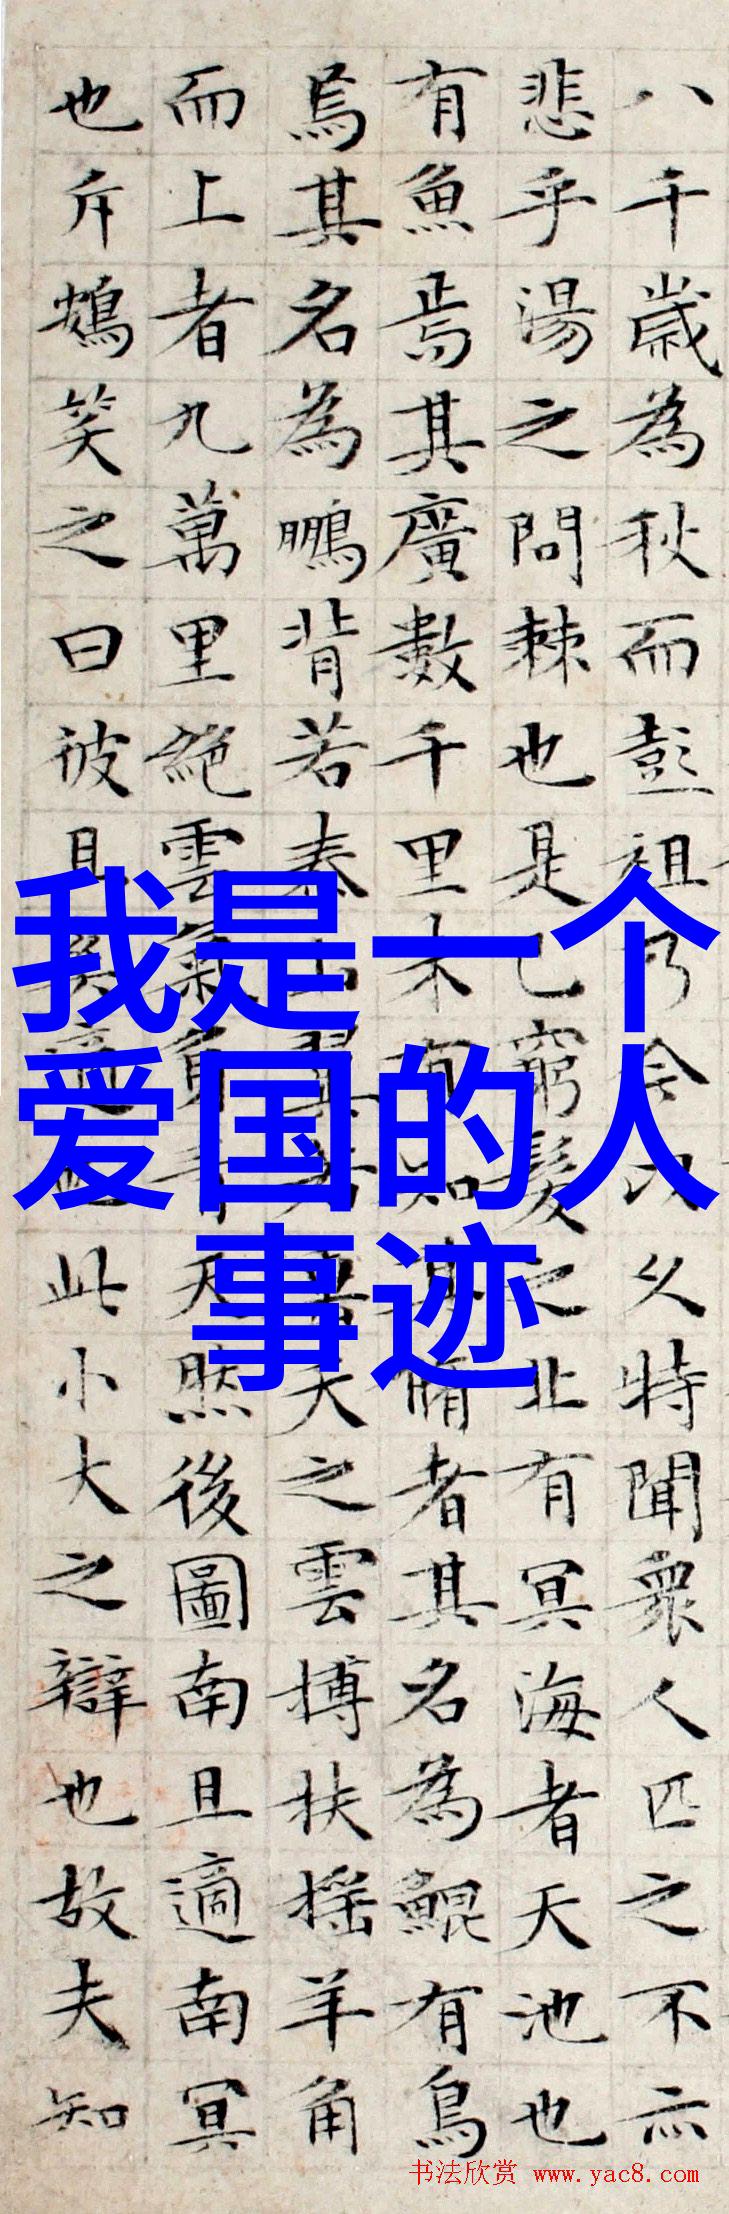 八千歲為秋而彭祖乃今以久特聞眾人匹之不亦
悲乎湯之問棘也是已窮髮之北有冥海者天池也
有魚焉其廣數千里未有知其脩者其名為鯤有鳥
焉其名為鵬背若泰山翼若垂天之雲搏扶搖羊角
而上者九萬里絕雲氣負青天然後圖南且適南冥
也斥鴳笑之曰彼且奚適也此小大之辯也故夫知
我是一个
爱国的人
事迹
书法欣赏 www.yac8.com